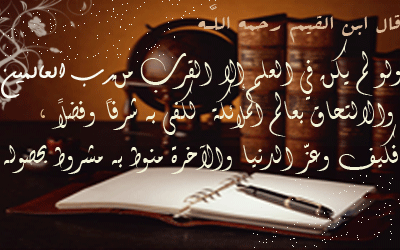 قال ابن القيم رحمه الله
ولو لم يكن في العلم إلا القرب من رب العالمين
والالتحاق بعالم الملائكة لكفى به شرفاً وفضلاً ،
فكيف وعزّ الدنيا والآخرة منوط به مشروط بحصوله